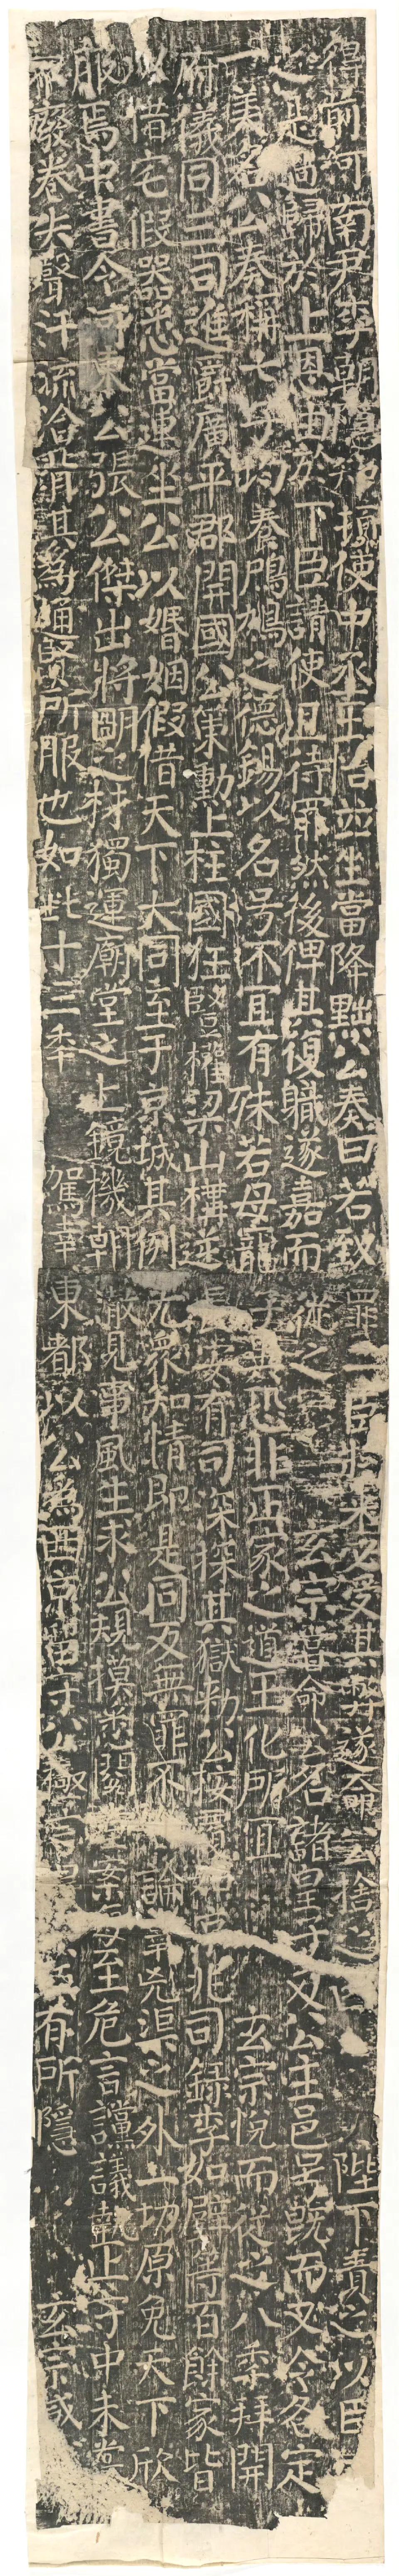 得前河南尹李朝隱知頓使中丞王怡並坐當降黜公奏曰若致罪二臣將來必受其弊遂命公捨之公陛下責之以臣
之是過歸於上恩由於下臣請使且待罪然後俾其復職遂嘉而從之玄宗嘗命公名諸皇子及公主邑号既而又令各定
一美名公奏稱七子均養鳲鳩之德錫以名号不宜有殊若母寵子異恐非正家之道王化所宜玄宗悅而從之八年拜開
府儀同三司進爵廣平郡開國公策勳上柱國往陞權梁山構逆長安有司深探其獄勑公按覆北司錄李如璧等百餘家皆
以借宅假器悉當連坐公以婚姻假借天下大同至于京城其例尤衆知情即是同反無罪不論辜兇追之外一切原免天下欣
服焉中書令河東公張公傑出將明之材獨運廟堂之上鏡機朝澈見事風生求公規模悉援案及至危言讜議執正守中未嘗
不廢卷失聲汗流洽背其為通賢所服也如此十三年駕幸東都以公為西京留守公極言得失無有所隱玄宗咸